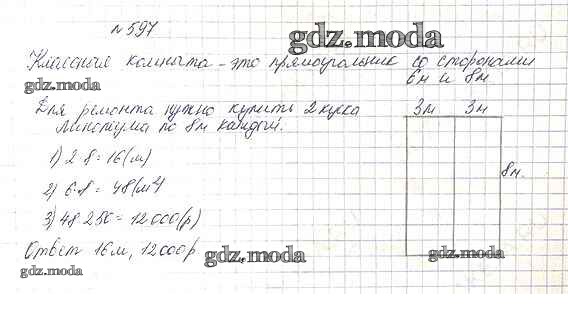 №597
gdz.moda
Классная комната - это прямоугольник со сторонами
6м и 8м
gdz.moda
Для ремонта нужно купить 2 куска
линолиума по 8м каждый.
3м 3м
1) 2·8=16(м)
8м.
2) 6·8= 48(м²)
3) 48·250=12000(р)
Ответ 16м, 12000р.
gdz.moda
gdz.moda
gdz.moda